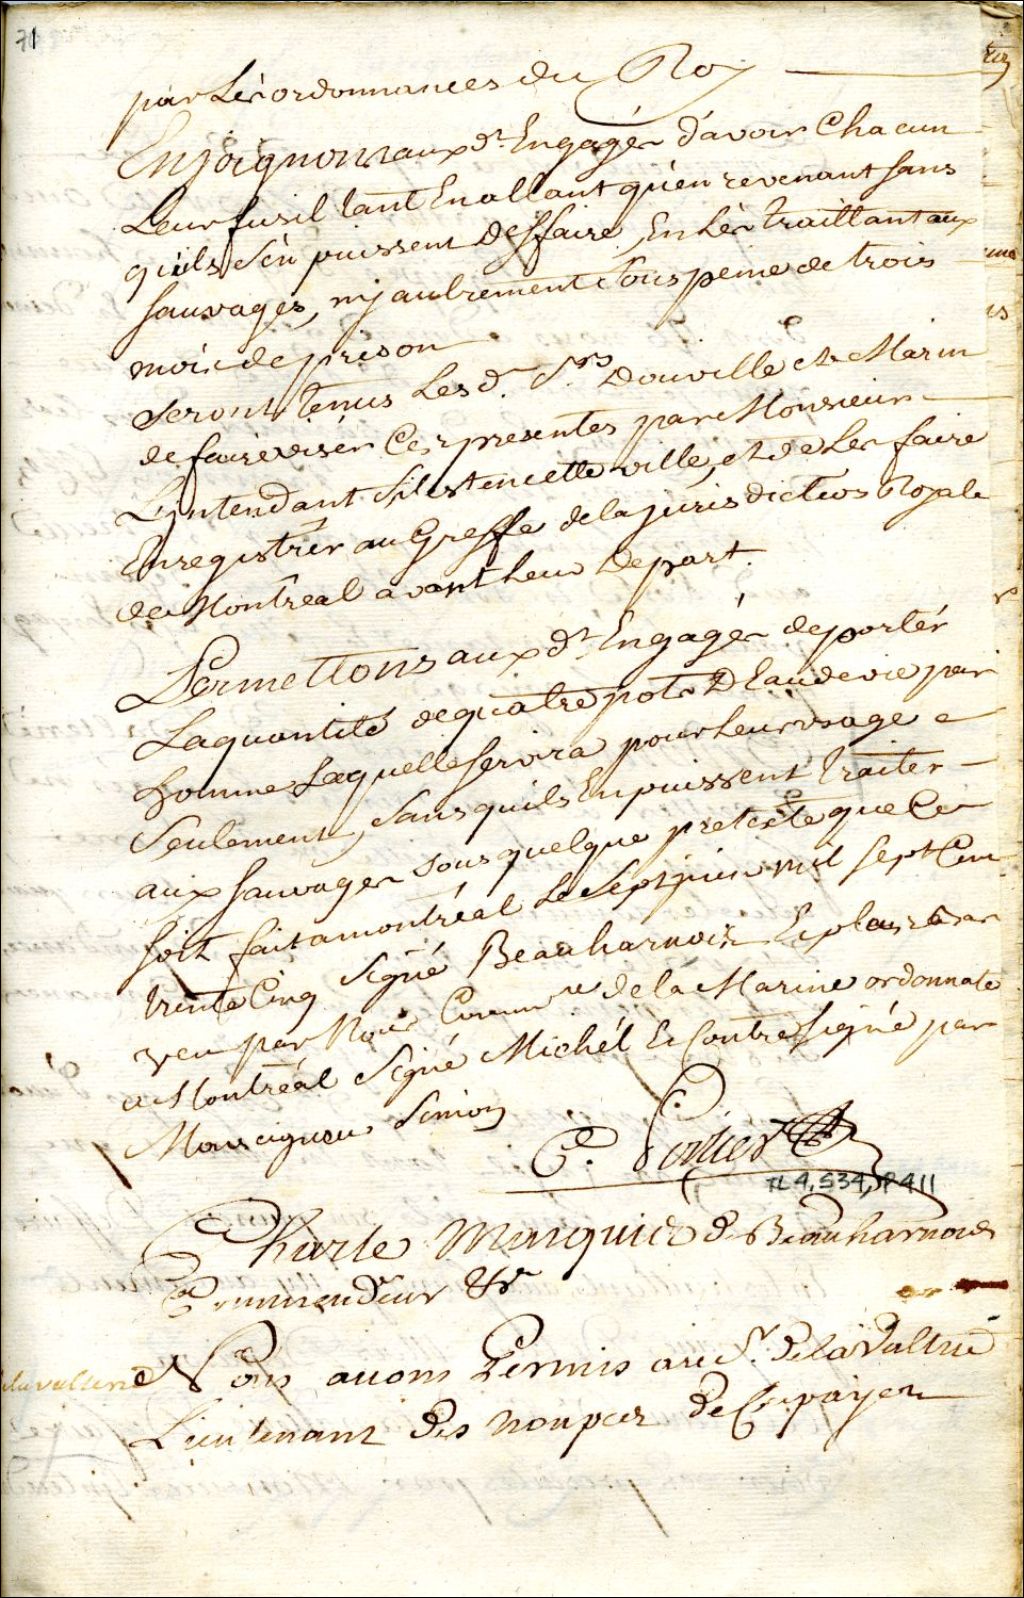 71
par Les ordonnances du Roy
Enjoignons aux d.t Engagés d'avoir Chacun
Leur fusil tant En allant qu'en revenant sans
quils s'en puissent deffaire, En Les traittant aux
sauvages, ny autrement sous peine de trois
mois de prison
Seront tenus Lesd. S.rs Douville et Marin
de faire viser Ces presentes par Monsieur
L'jntendant s'il est en cette ville, et de Les faire
Enregistrer au Greffe de la jurisdiction Royale
de Montreal avant Leur Depart.
Permettons aux d.t Engagés de porter
La quantité de quatre pots D'Eau de vie par
homme Laquelle servira pour Leur usage
Seulement, sans quils En puissent traiter
aux sauvages sous quelque pretexte que Ce
soit fait a montréal Le Sept juin mil sept Cent
trente Cinq signé Beauharnois Et plus bas
veu par Nous Comm.re de la Marine ordonnate
a Montréal Signé Michel Et Contresigné par
Monseigneur
C. Porlier
TL4,S34,P411
Charle Marquis de Beauharnois
Commendeur &r
delavaltrie Nous avons Permis au S.r De la Valtrie
Lieutenant des troupes de Ce payen